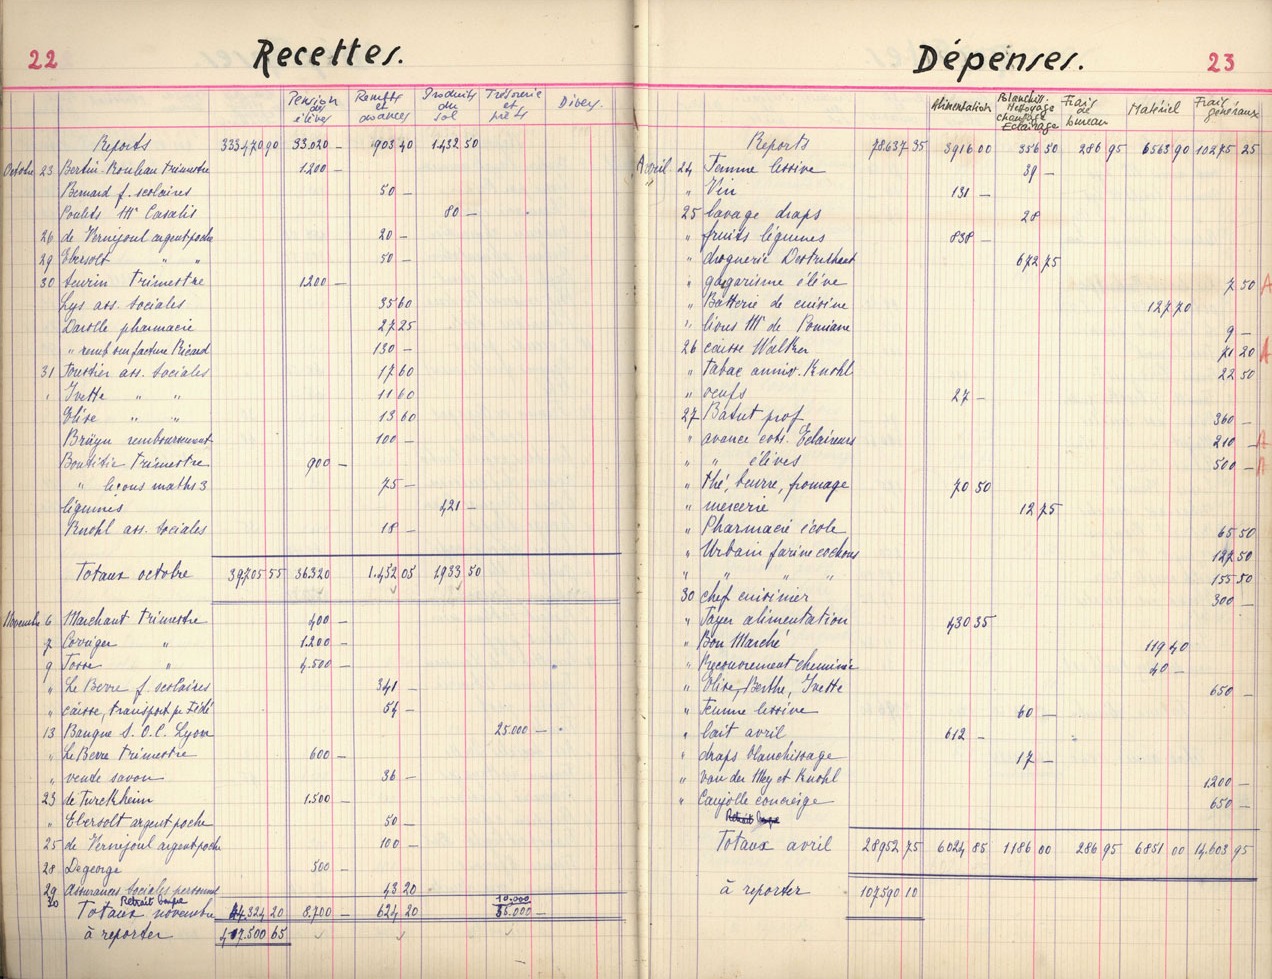 22 Recettes.
Pension des élèves | Rembts et avances | Produits du sol | Trésorerie et prêts | Divers.
Reports 333470 90 | 33.020 — | 903 40 | 1.432 50
Octobre 23 Bertin-Rouleau trimestre 1.200 —
Bernard f. scolaires 50 —
Poulets Mr Casalis 80 —
26 de Vernejoul argent poche 20 —
29 Ebersolt " " 50 —
30 Seurin trimestre 1.200 —
Lys ass. sociales 35 60
Darolle pharmacie 27 25
" remb sur facture Ricard 130 —
31 Toustier ass. sociales 17 60
" Yvette " " 11 60
Elise " " 13 60
Bruyn remboursement 100 —
trimestre 900 —
" leçons maths 3 75 —
légumes 421 —
Knohl ass. sociales 18 —
Totaux octobre 39705 55 | 36320 | 1.452 05 | 1933 50
Novembre 6 Marchant trimestre 400 —
7 Corriger " 1.200 —
9 Torre " 4.500 —
" Le Berre f. scolaires 341 —
" caisse, transport 54 —
13 Banque S. O. C. Lyon 25.000 —
" Le Berre trimestre 600 —
" vende savon 36 —
23 de Turckheim 1.500 —
" Ebersolt argent poche 50 —
25 de Vernejoul argent poche 100 —
28 Degeorge 500 —
29 Assurances sociales personnel 43 20
30 Retrait 10.000
Totaux novembre 44.324 20 | 8.700 — | 624 20 | 35.000 —
à reporter 417.500 65
Dépenses. 23
Alimentation | Blanchiss. Nettoyage chauffage Eclairage | Frais de bureau | Matériel | Frais généraux
Reports 78637 35 | 3916 00 | 356 50 | 286 95 | 6563 90 | 10275 25
Avril 24 Femme lessive 39 —
" " Vin 131 —
25 lavage draps 28
" fruits légumes 838 —
" droguerie 672 75
" gargarisme élève 7 50 A
" Batterie de cuisine 127 70
" livres Mr de Pomiane 9 —
26 caisse Walker 71 20 A
" tabac anniv. Knohl 22 50
" oeufs 27 —
27 Batut prof 360 —
" avance coti. Eclaireurs 210 — A
" " élèves 500 — A
" thé, beurre, fromage 70 50
" mercerie 12 75
" Pharmacie école 65 50
" Urbain farine cochons 127 50
" " " " 155 50
30 chef cuisinier 300 —
" Foyer alimentation 430 35
" Bon Marché 119 40
" Recouvrement cheminée 40 —
" Elise, Berthe, Yvette 650 —
" Femme lessive 60 —
" lait avril 612 —
" draps blanchissage 17 —
" van der Mey et Knohl 1.200 —
" Caujolle concierge 650 —
Totaux avril 28952 75 | 6024 85 | 1186 00 | 286 95 | 6851 00 | 14.603 95
à reporter 107590 10